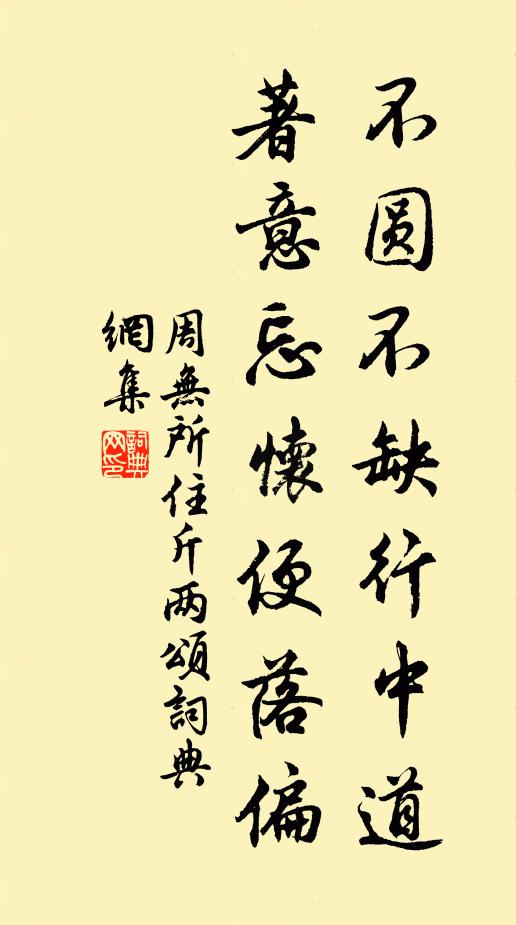 不圆不缺行中道
著意忘懷便落偏
周無所住斤两頌詞典
網集
詞典
网印